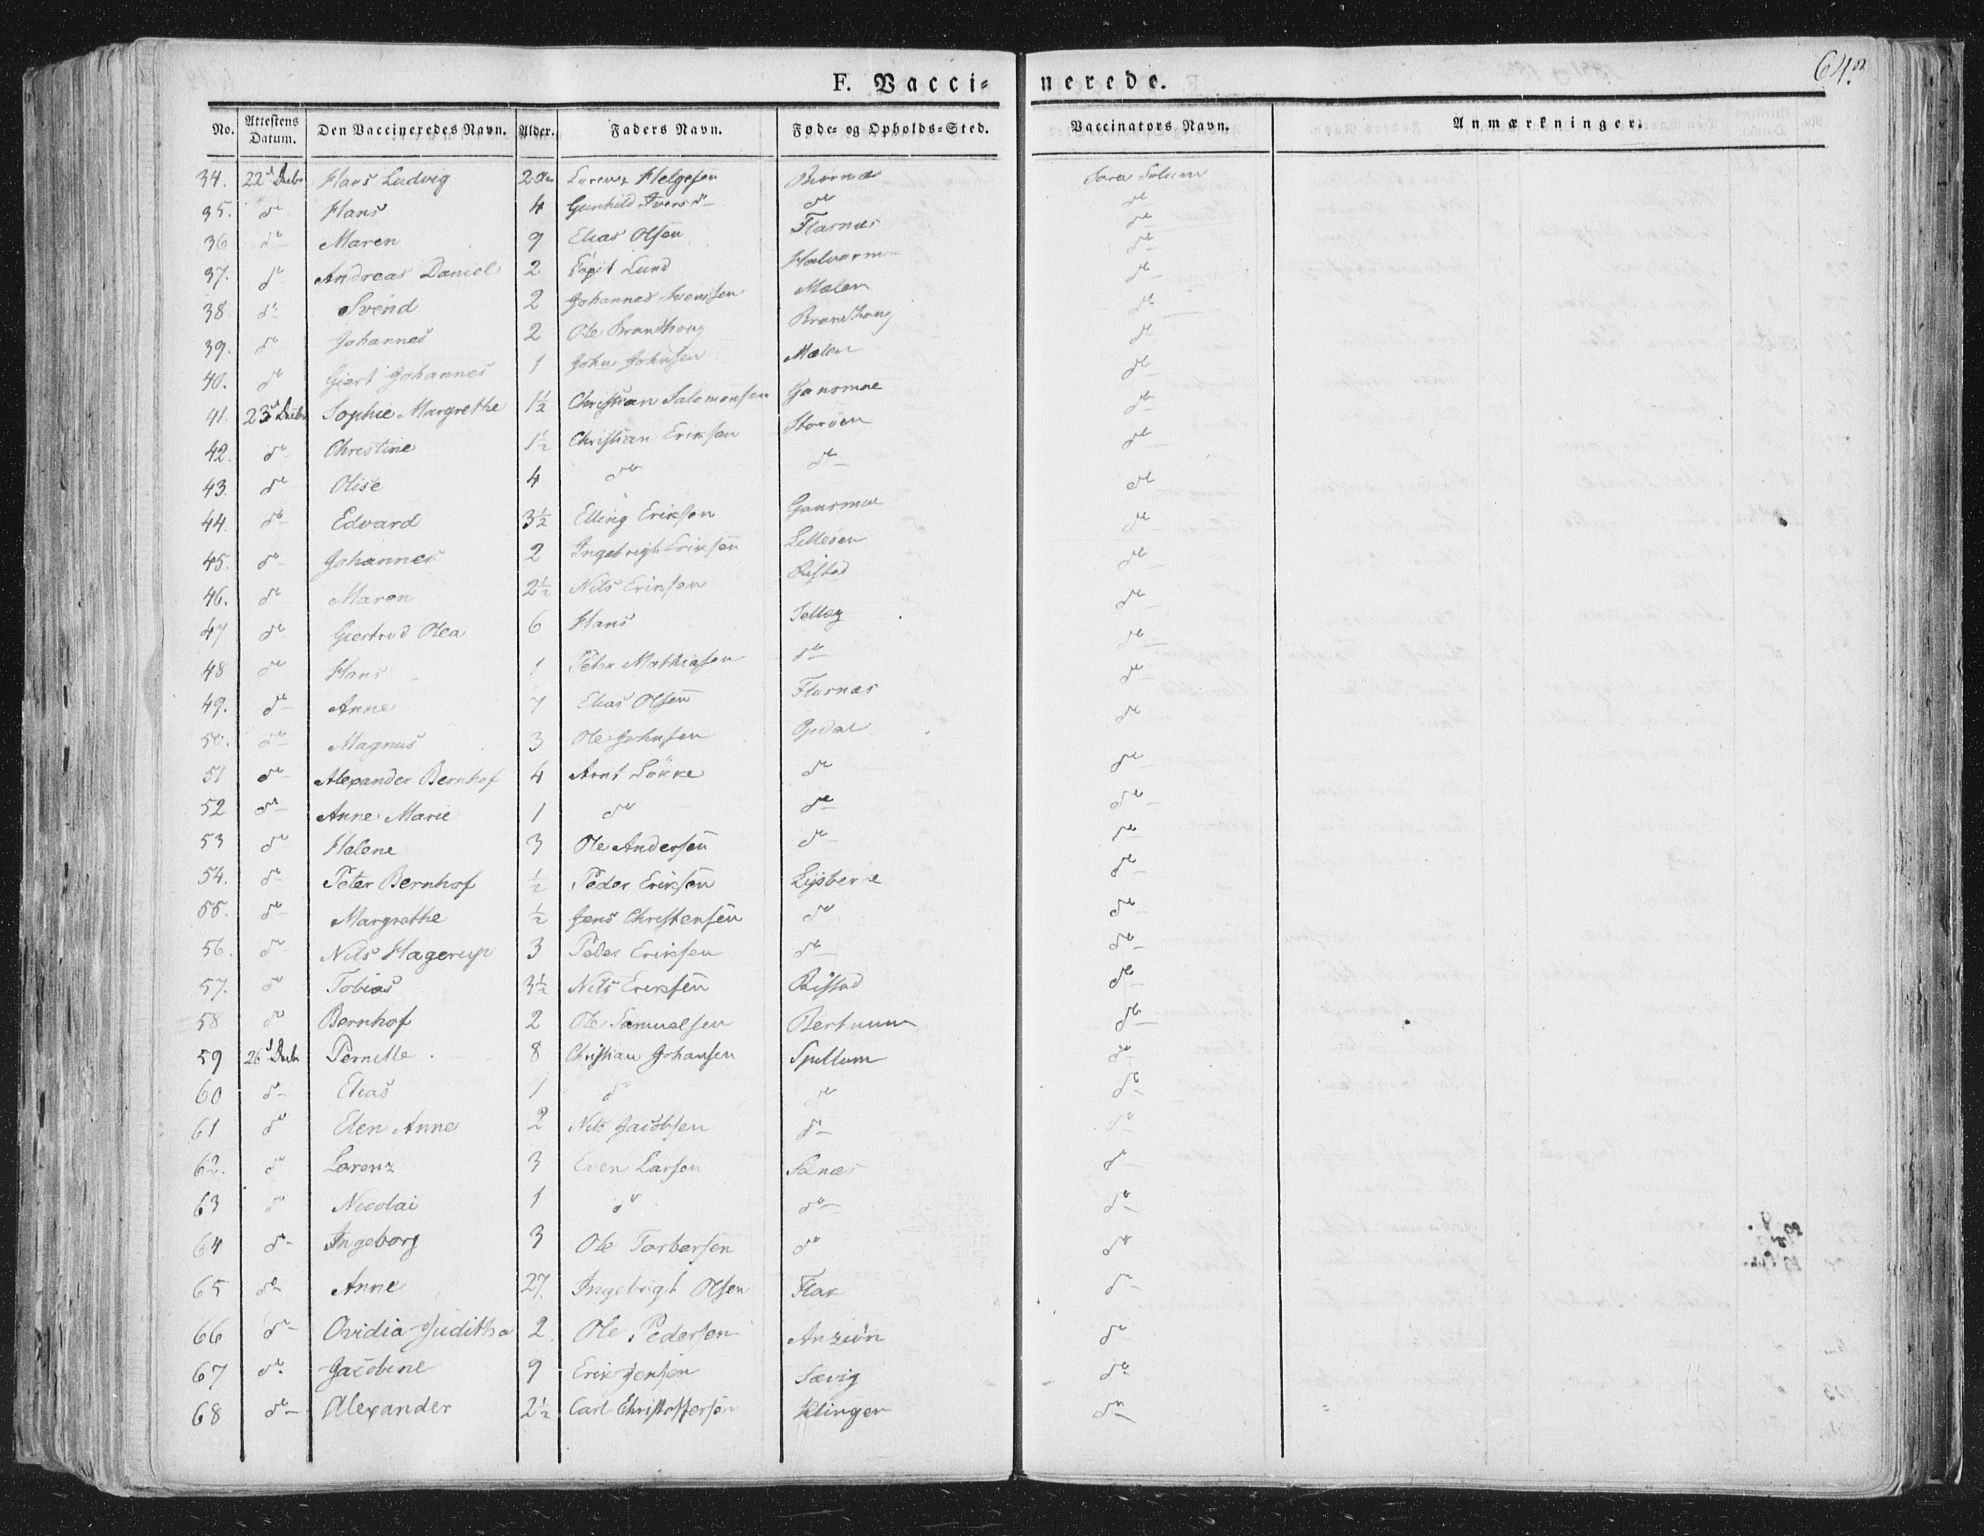 64.
F. Vacci- nerede.
No. Attestens Datum. Den Vaccineredes Navn. Alder. Faders Navn. Føde- og Opholds-Sted. Vaccinators Navn. Anmærkninger.
34. 22 Hans Ludvig Lorenz Helgesen Sara Solum
35. do Hans 4 Gunhild Iversd do do
36 do Maren 9 Elias Olsen Flasnæs do
37. do Andreas Daniel 2 Lund do
38. do Svend 2 Johannes Svensen Mælen do
39. do Johannes 2 Ole do
40. do Giert Johannes 1 John Johnsen Mælen do
41. 23 Sophie Margrethe 1½ Christian Salomonsen Gansmoe do
42. do Christine 1½ Christian Eriksen Storøen do
43. do Olise 4 do do do
44. do Edvard 3½ Elling Eriksen Gansmoe do
45. do Johannes 2 Ingebrigt Eriksen Lilleøen do
46. do Maren 2½ Nils Eriksen Ristad do
47 do Giertrud Olea 6 Hans do
48 do Hans 1 Peter Mathiasen do do
49. do Anne 7 Elias Olsen Flasnæs do
50. do Magnus 3 Ole Johnsen Opdal do
51 do Alexander Bernhof 4 Arnt Løkke do do
52 do Anne Marie 1 do do do
53 do Helene 3 Ole Andersen do do
54. do Peter Bernhof ½ Peder Eriksen do
55. do Margrethe ½ Jens Christensen do do
56. do Nils Hagerup 3 Peder Eriksen do do
57. do Tobias 3½ Nils Eriksen Ristad do
58 do Bernhof 2 Ole Samuelsen do
59 26 Pernille 8 Christian Johansen Spillum do
60 do Elias 1 do do do
61 do Elen Anne 2 Nils Jacobsen do do
62. do Lorenz 3 Even Larsen do
63 do Nicolai 1 do do do
64 do Ingeborg 3 Ole Torbersen do do
65 do Anne 27. Ingebrigt Olsen Flak do
66 do Ovidia Juditha 2 Ole Pedersen do
67 do Jacobine 9 Erik Jensen Sævig do
68 do Alexander 2½ Carl Christoffersen Klingen do